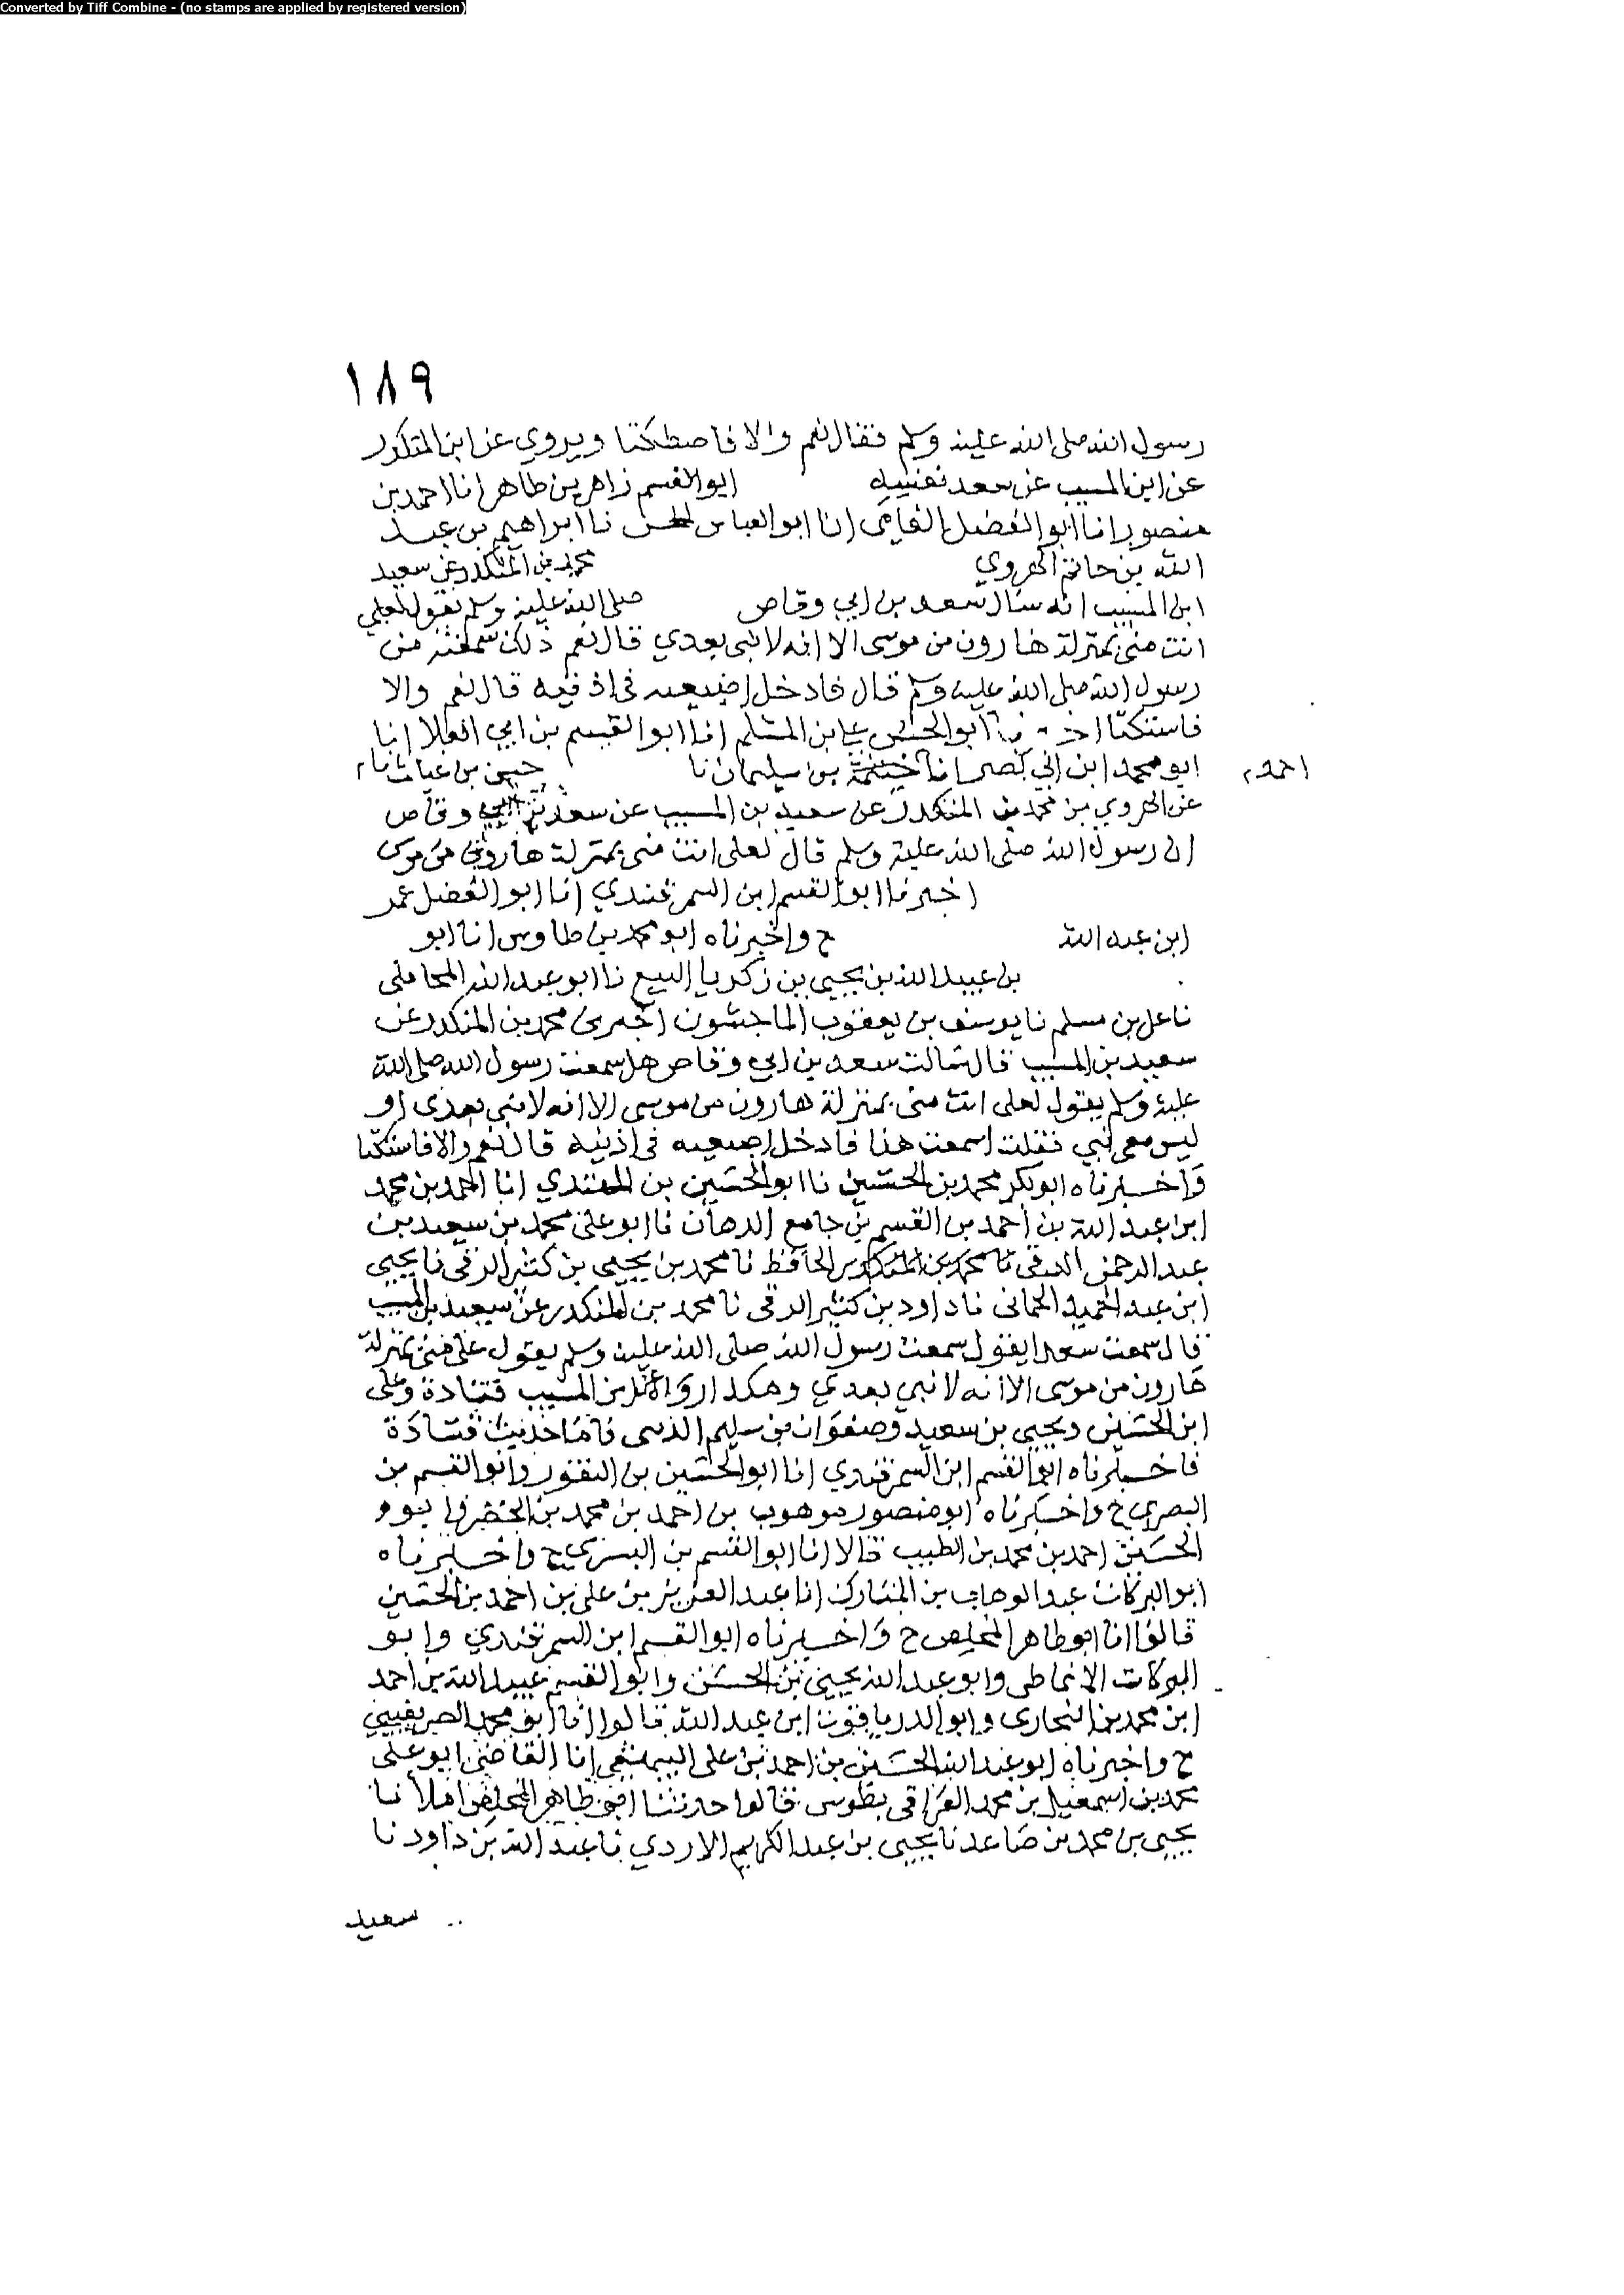 Converted by Tiff Combine - (no stamps are applied by registered version)
١٨٩
رسول الله صلى الله عليه وسلم فقال نعم والا فاصطكتا ويروي عن ابن المنكدر
عن ابن المسيب عن سعد نفسه ابو القسم زاهر بن طاهر انا احمد بن
منصور انا ابو الفضل الفامي انا ابو العباس نا ابراهيم بن عبد
الله بن حاتم الهروي محمد بن المنكدر عن سعيد
ابن المسيب انه سال سعد بن ابي وقاص صلى الله عليه وسلم يقول لعلي
انت مني بمنزلة هارون من موسى الا انه لا نبي بعدي قال نعم ذلك سمعته من
رسول الله صلى الله عليه وسلم قال فادخل اصبعيه في اذنيه قال نعم والا
فاستكتا ابو الحسن علي بن المسلم انا ابو القسم بن ابي العلا انا
ابو محمد ابن ابي نصر انا خيثمة بن سليمان نا
احمد
عن الهروي بن محمد بن المنكدر عن سعيد بن المسيب عن سعد بن ابي وقاص
ان رسول الله صلى الله عليه وسلم قال لعلي انت مني بمنزلة هارون من موسى
اخبرنا ابو القسم ابن السمرقندي انا ابو الفضل عمر
ابن عبد الله ح واخبرناه ابو محمد بن طاوس انا ابو
بن عبيد الله بن يحيى بن زكريا البيع نا ابو عبد الله المحاملي
نا علي بن مسلم نا يوسف بن يعقوب الماجشون اخبرني محمد بن المنكدر عن
سعيد بن المسيب قال سالت سعد بن ابي وقاص هل سمعت رسول الله صلى الله
عليه وسلم يقول لعلي انت مني بمنزلة هارون من موسى الا انه لا نبي بعدي او
ليس معي نبي فقلت اسمعت هذا فادخل اصبعيه في اذنيه قال نعم والا فاستكتا
واخبرناه ابو بكر محمد بن الحسين نا ابو الحسين بن المهتدي انا احمد بن محمد
ابن عبد الله بن احمد بن القسم بن جامع الدهان نا ابو علي محمد بن سعيد بن
عبد الرحمن الرقي نا الحافظ نا محمد بن يحيى بن كثير الرقي نا يحيى
ابن عبد الحميد الحماني نا داود بن كثير الرقي نا محمد بن المنكدر عن سعيد بن المسيب
قال سمعت سعدا يقول سمعت رسول الله صلى الله عليه وسلم يقول علي مني بمنزلة
هارون من موسى الا انه لا نبي بعدي وهكذا رواه عن ابن المسيب قتادة وعلي
ابن الحسين ويحيى بن سعيد وصفوان بن سليم فاما حديث قتادة
فاخبرناه ابو القسم ابن السمرقندي انا ابو الحسين بن النقور وابو القسم بن
البسري ح واخبرناه ابو منصور موهوب بن احمد بن محمد بن الخضر وابو
الحسين احمد بن محمد بن الطيب قالا انا ابو القسم بن البسري ح واخبرناه
ابو البركات عبد الوهاب بن المبارك انا عبد العزيز بن علي بن احمد بن الحسين
قالوا انا ابو طاهر المخلص ح واخبرناه ابو القسم ابن السمرقندي وابو
البركات الانماطي وابو عبد الله يحيى بن الحسن وابو القسم عبيد الله بن احمد
ابن محمد بن البخاري وابو الدر ياقوت ابن عبد الله قالوا انا ابو محمد الصريفيني
ح واخبرناه ابو عبد الله الحسين بن احمد بن علي البيهقي انا القاضي ابو علي
محمد بن اسمعيل بن محمد العراقي بطوس قالوا حدثنا ابو طاهر المخلص املا نا
يحيى بن محمد بن صاعد نا يحيى بن عبد الكريم الازدي نا عبد الله بن داود نا
سعيد